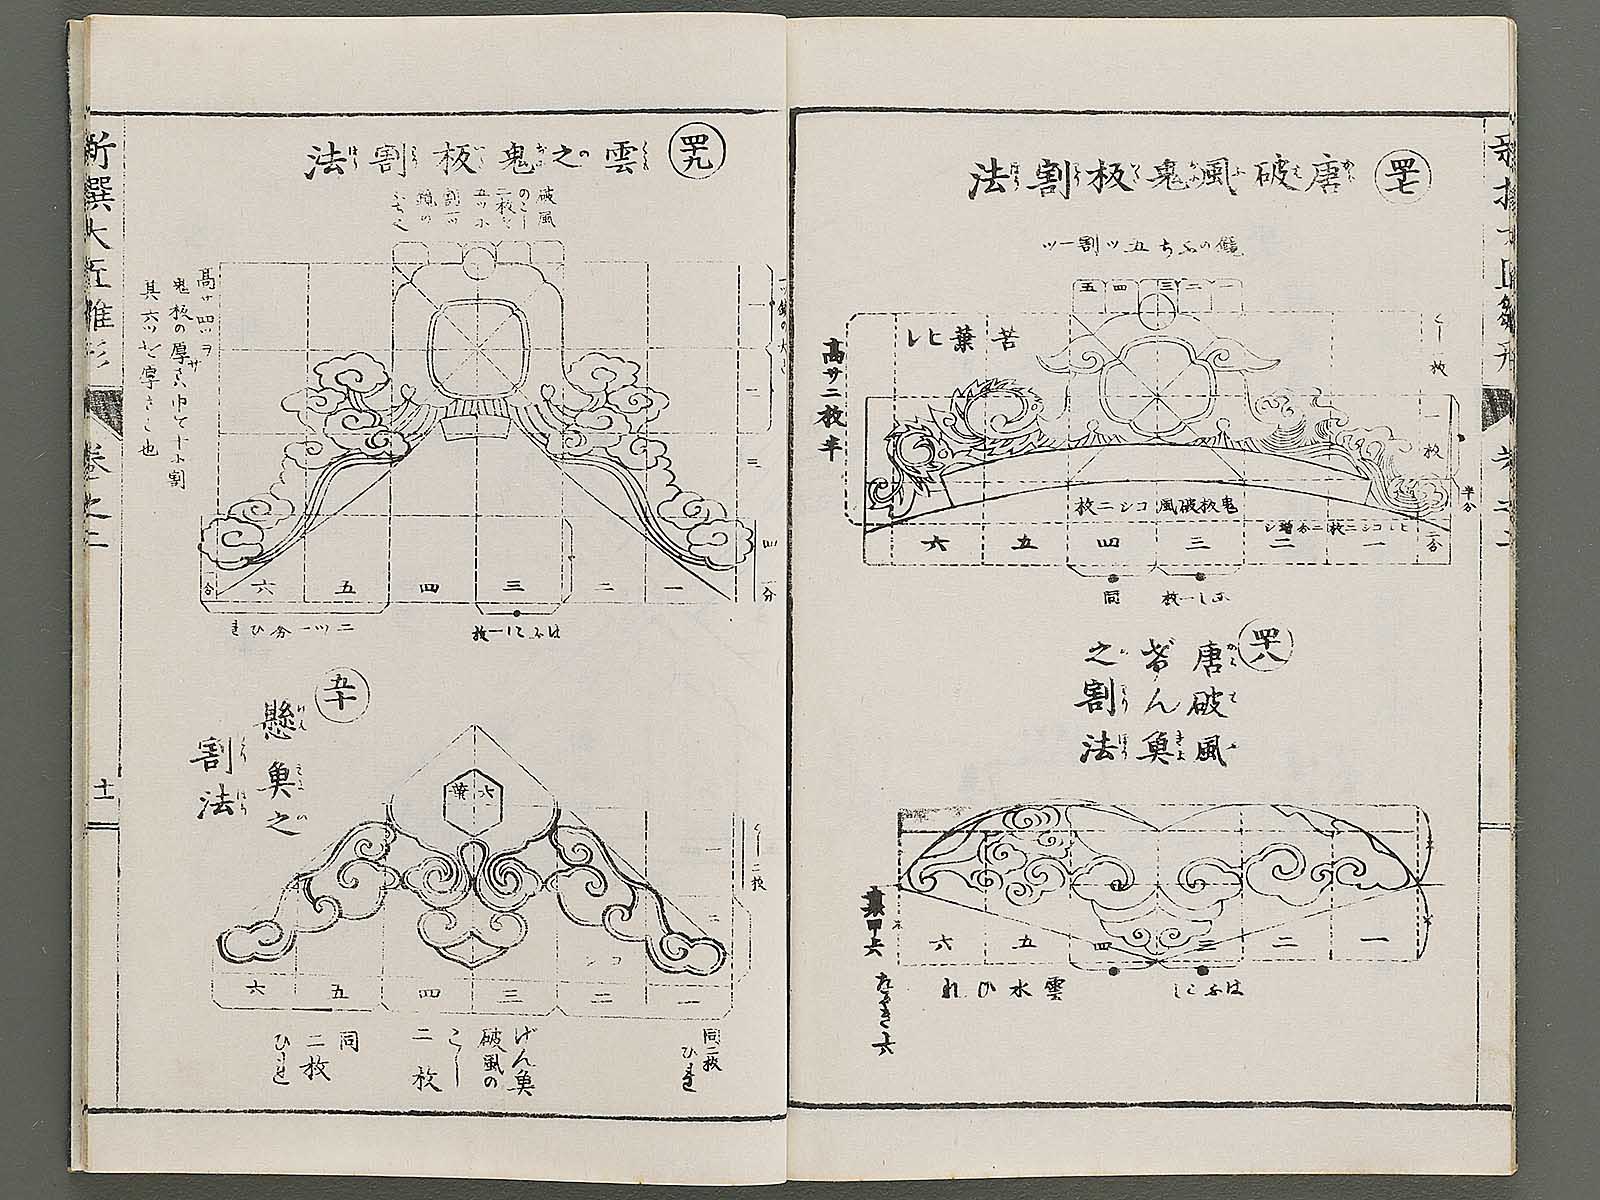 四十七
唐破風鬼板割法
鏡のふち五ツ割一ツ
一
二
三
四
五
苦葉ヒレ
高サ二枚半
一枚
半分
二分
鬼板破風コシ二枚
一
二
三
四
五
六
同
四十八
唐破風
げん魚
之割法
一
二
三
四
五
六
雲水ひれ
はふこし
四十九
雲之鬼板割法
破風
のこし
二枚を
五ツに
割可
鏡の
ふちへ
高サ四ツヲ
鬼板の厚さハ巾て十ヲ割
其六ツを厚さと也
一
二
三
四
一分
一
二
三
四
五
六
一分
はふこし一枚
二ツ一分ひれ
五十
懸魚之
割法
六葉
こし二枚
一
二
コシ
一
二
三
四
五
六
同二枚
ひれ
げん魚
破風の
こし
二枚
同
二枚
ひれ
新撰大匠雛形
巻之二
十一